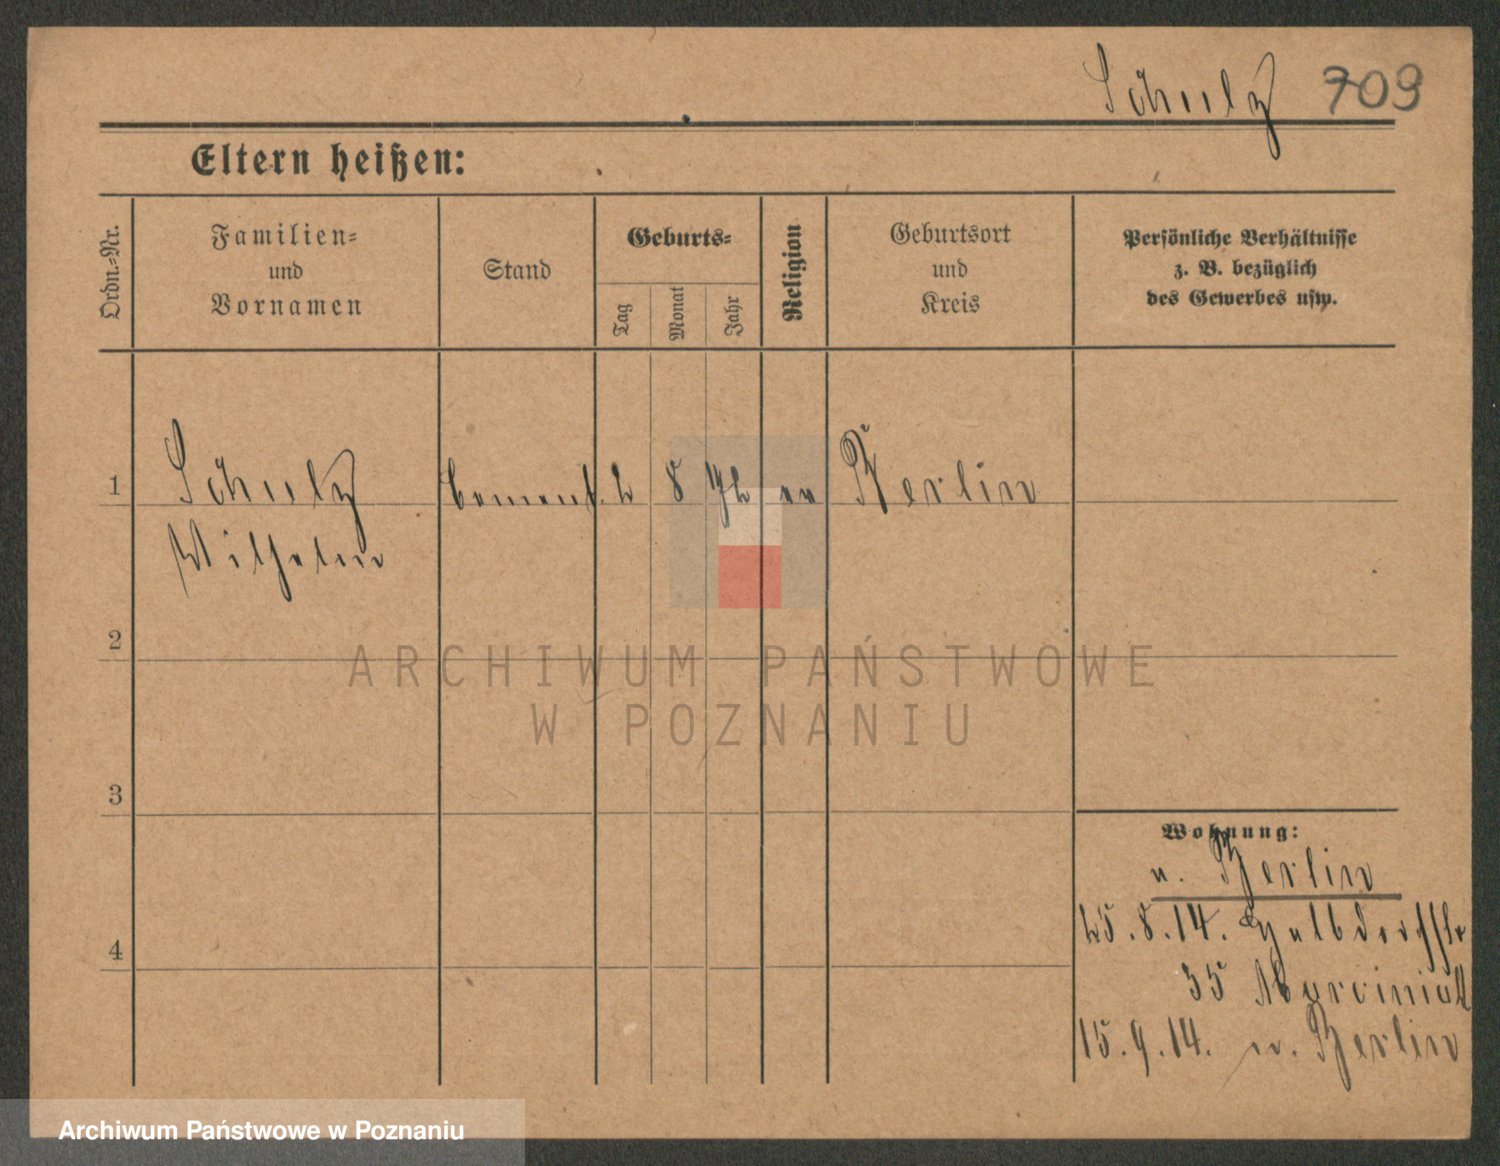 Schulz 709
Eltern heißen:
Ordn.-Nr.
Familien-
und
Vornamen
Stand
Geburts-
Tag
Monat
Jahr
Religion
Geburtsort
und
Kreis
Persönliche Verhältnisse
z. B. bezüglich
des Gewerbes usw.
1
Schulz 2 8 ev Berlin
Wilhelm
2
3
4
Wohnung:
v. Berlin
25.8.14.
35 Marciniak
15.9.14. n. Berlin
ARCHIWUM PAŃSTWOWE
W POZNANIU
Archiwum Państwowe w Poznaniu